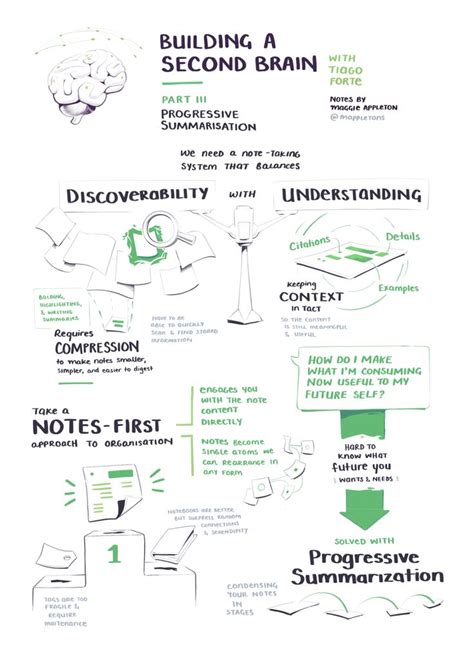 BUILDING A
SECOND BRAIN
WITH
TIAGO
FORTE
PART III
PROGRESSIVE
SUMMARISATION
NOTES BY
MAGGIE APPLETON
@mappletons
WE NEED A NOTE-TAKING
SYSTEM THAT BALANCES
DISCOVERABILITY WITH UNDERSTANDING
Citations
Details
Examples
BOLDING,
HIGHLIGHTING,
& WRITING
SUMMARIES
Requires
COMPRESSION
to make notes smaller,
simpler, and easier to digest
HAVE TO BE
ABLE TO QUICKLY
SCAN & FIND STORED
INFORMATION
Keeping
CONTEXT
IN TACT
SO THE CONTENT
IS STILL MEANINGFUL
& USEFUL
HOW DO I MAKE
WHAT I'M CONSUMING
NOW USEFUL TO MY
FUTURE SELF?
TAKE A
NOTES-FIRST
APPROACH TO ORGANISATION
ENGAGES YOU
WITH THE NOTE
CONTENT
DIRECTLY
NOTES BECOME
SINGLE ATOMS WE
CAN REARRANGE IN
ANY FORM
HARD TO
KNOW WHAT
future you
WANTS & NEEDS
NOTEBOOKS ARE BETTER
BUT SUPPRESS RANDOM
CONNECTIONS
& SERENDIPITY
1
TAGS ARE TOO
FRAGILE &
REQUIRE
MAITENANCE
SOLVED WITH
Progressive
Summarization
CONDENSING
YOUR NOTES
IN STAGES